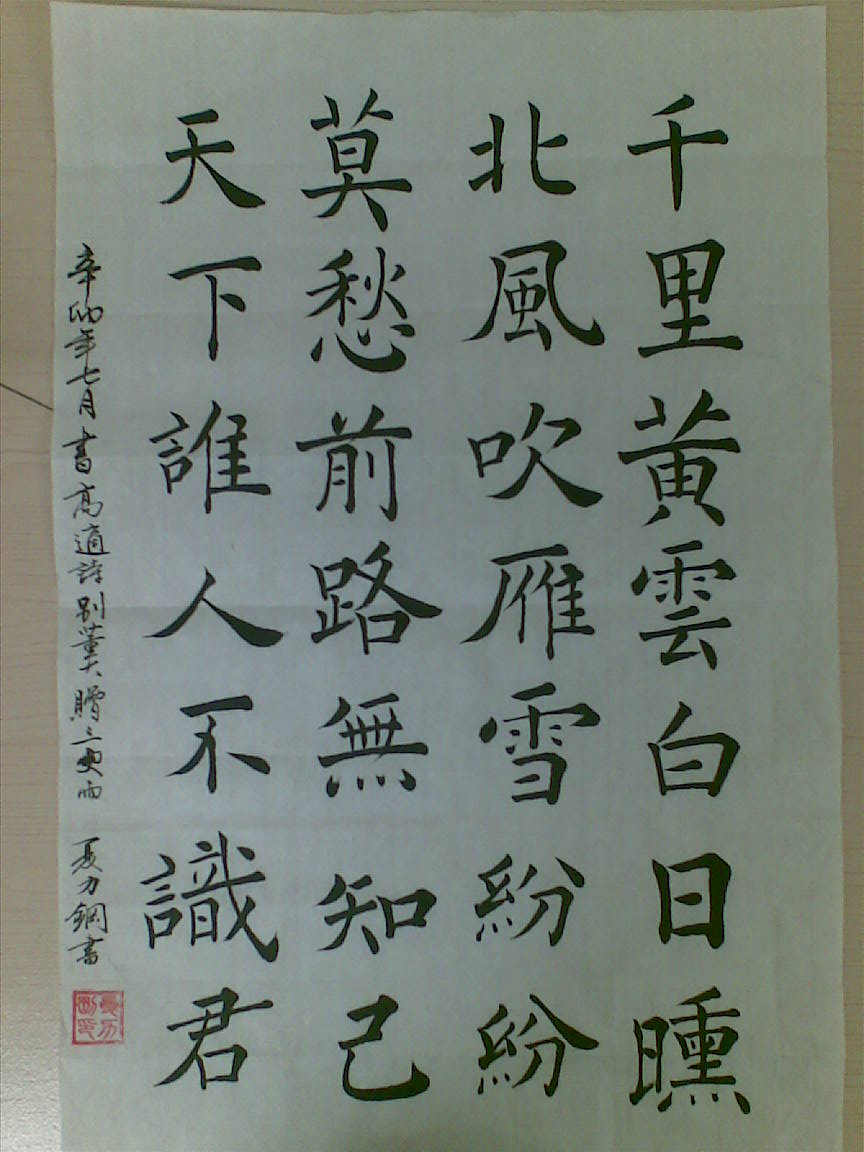 千里黄雲白日曛
北風吹雁雪紛紛
莫愁前路無知己
天下誰人不識君
辛卯年七月書高適詩別董大贈三更雨 夏力鋼書